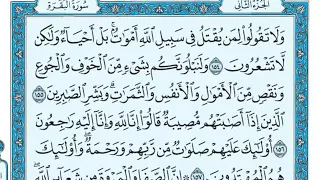 الجزء الثاني
سورة البقرة
وَلَا تَقُولُوا لِمَن يُقْتَلُ فِي سَبِيلِ اللَّهِ أَمْوَاتٌ بَلْ أَحْيَاءٌ وَلَٰكِن
لَّا تَشْعُرُونَ ١٥٤ وَلَنَبْلُوَنَّكُم بِشَيْءٍ مِّنَ الْخَوْفِ وَالْجُوعِ
وَنَقْصٍ مِّنَ الْأَمْوَالِ وَالْأَنفُسِ وَالثَّمَرَاتِ وَبَشِّرِ الصَّابِرِينَ ١٥٥
الَّذِينَ إِذَا أَصَابَتْهُم مُّصِيبَةٌ قَالُوا إِنَّا لِلَّهِ وَإِنَّا إِلَيْهِ رَاجِعُونَ ١٥٦
أُولَٰئِكَ عَلَيْهِمْ صَلَوَاتٌ مِّن رَّبِّهِمْ وَرَحْمَةٌ وَأُولَٰئِكَ
هُمُ الْمُهْتَدُونَ ١٥٧ إِنَّ الصَّفَا وَالْمَرْوَةَ مِن شَعَائِرِ اللَّهِ